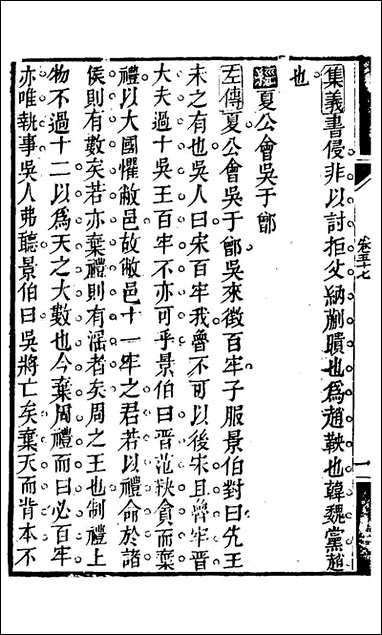 卷五十七
一
集義書侵非以討拒父納蒯聵也為趙鞅也韓魏黨趙
也
經夏公會吳于鄫
左傳夏公會吳于鄫吳來徵百牢子服景伯對曰先王
未之有也吳人曰宋百牢我魯不可以後宋且魯牢晉
大夫過十吳王百牢不亦可乎景伯曰晉范鞅貪而棄
禮以大國懼敝邑故敝邑十一牢之君若以禮命於諸
侯則有數矣若亦棄禮則有滛者矣周之王也制禮上
物不過十二以爲天之大數也今棄周禮而曰必百牢
亦唯執事吳人弗聽景伯曰吳將亡矣棄天而背本不